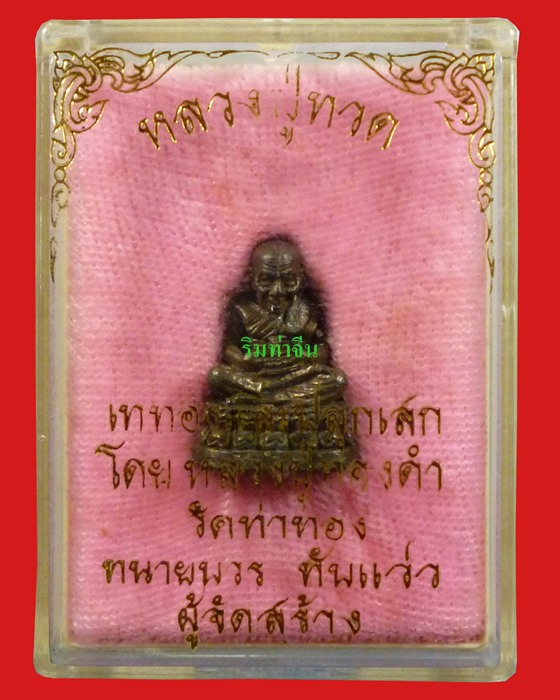 หลวงปู่ทวด
ริมท่าจีน
เททองและปลุกเสก
โดย หลวงปู่ทองดำ
วัดท่าทอง
ทนายนวร ทันแว่ว
ผู้จัดสร้าง